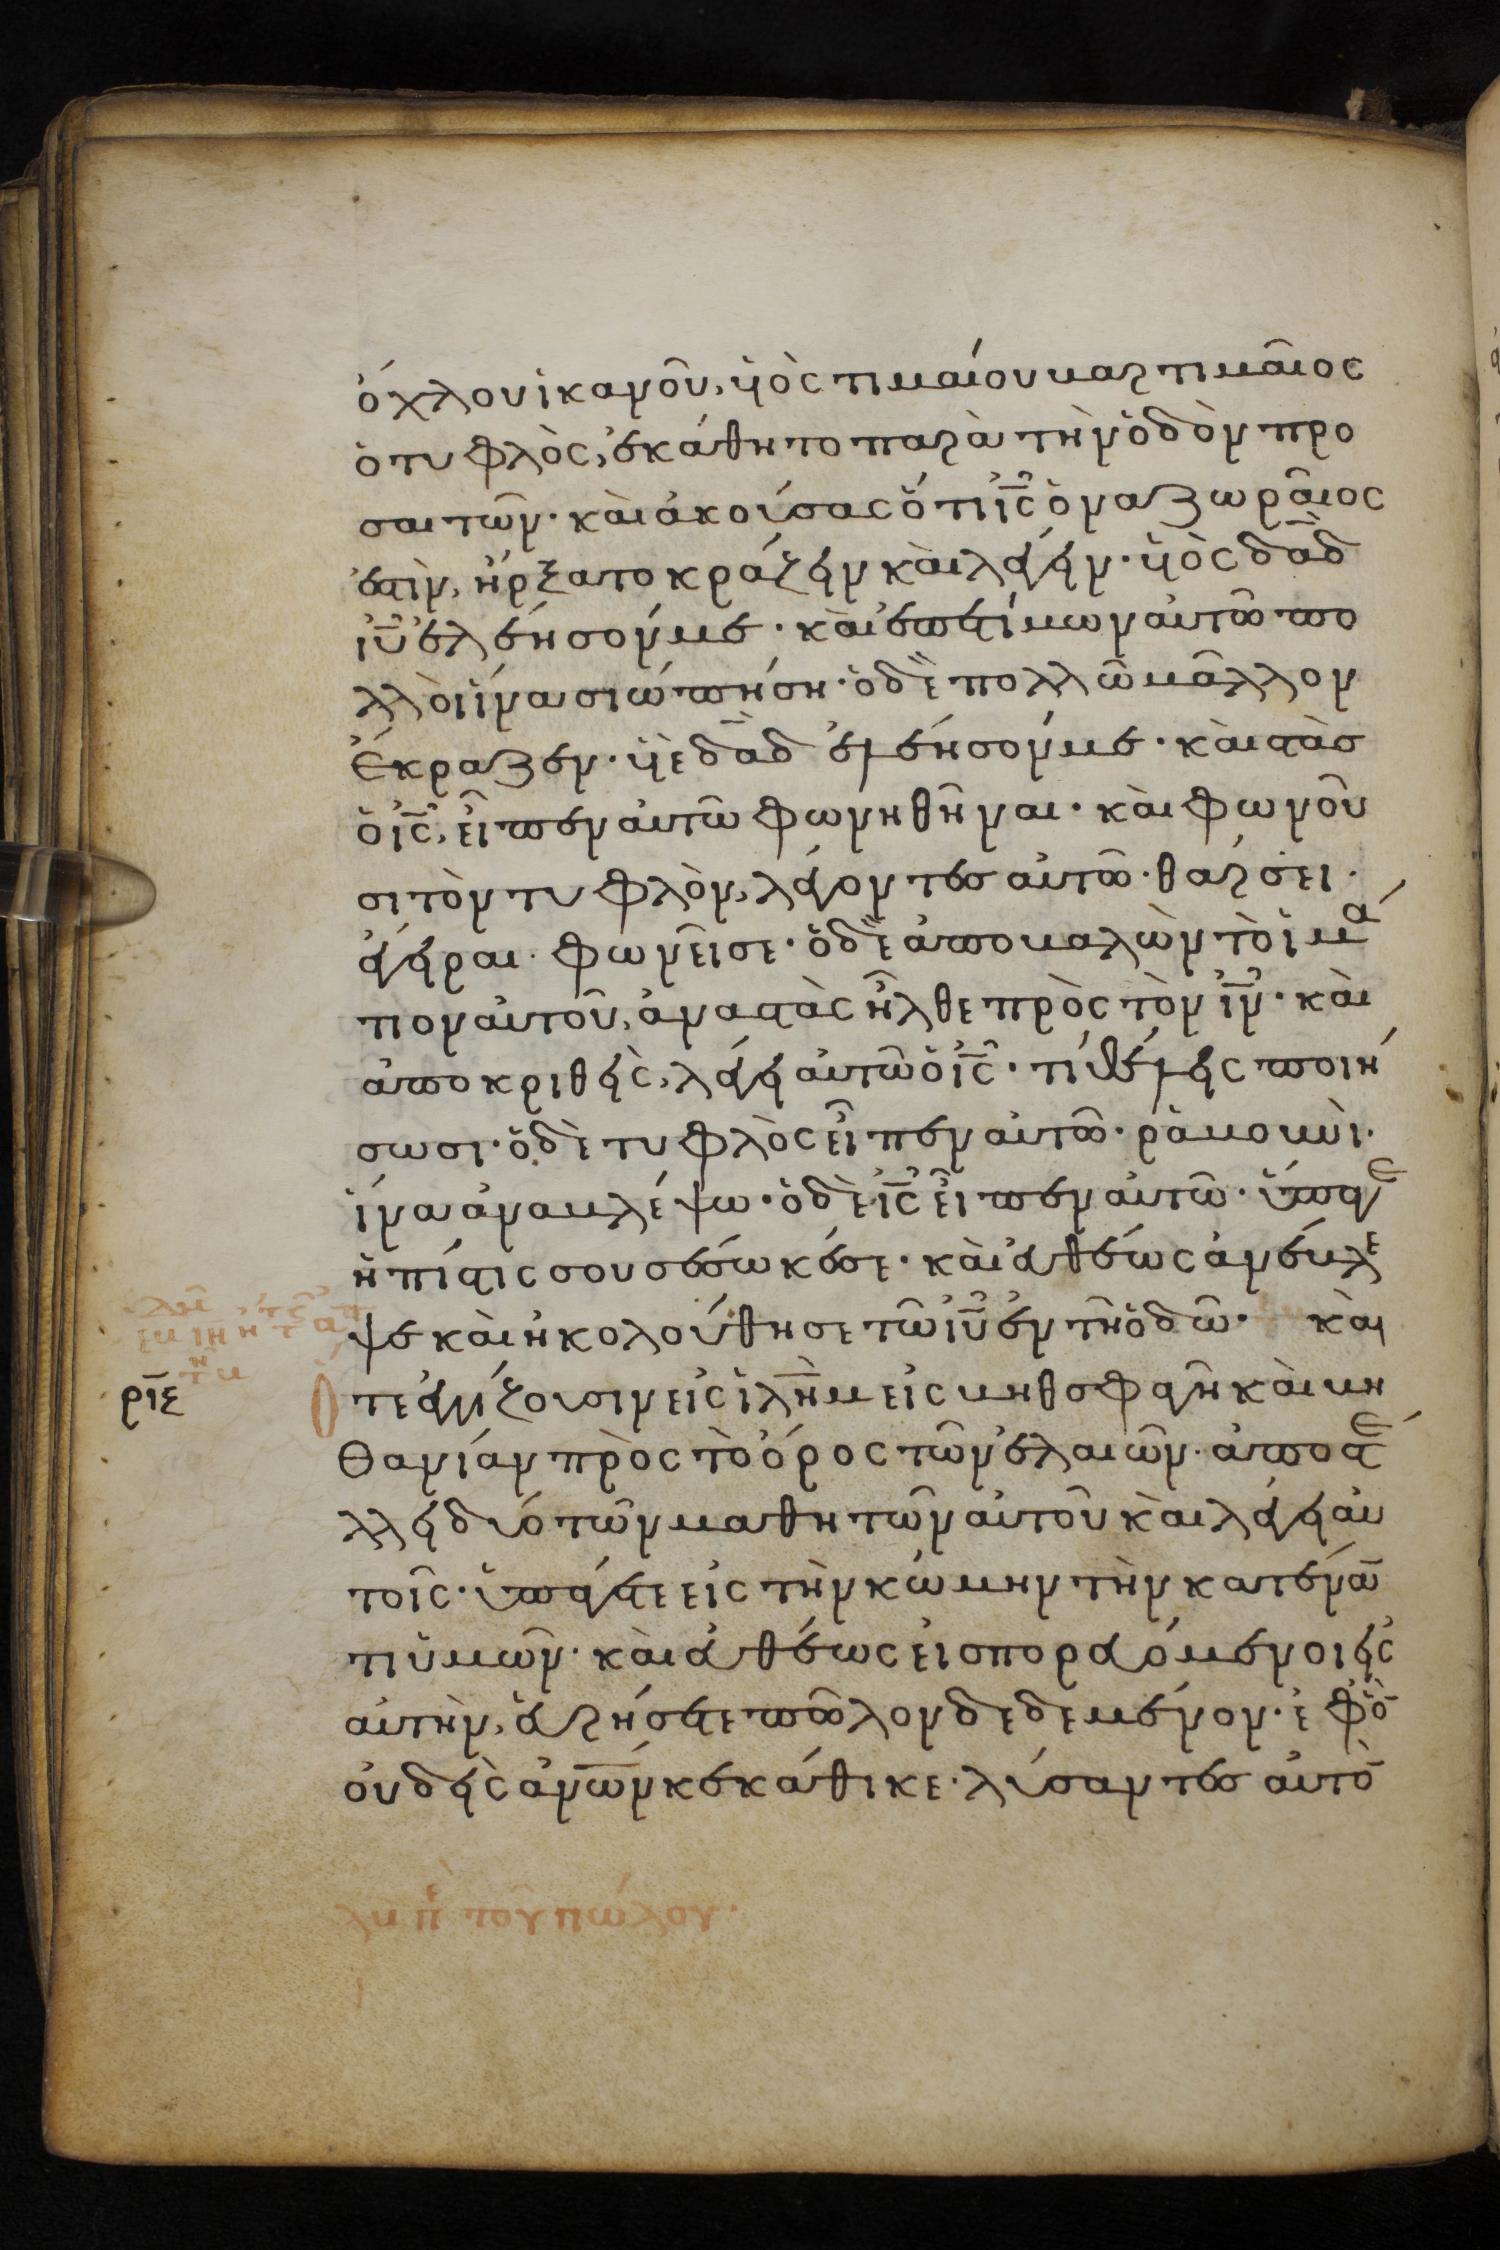 ὄχλου ἱκανοῦ, ὑιὸς τιμαίου βαρτιμαῖος
ὁ τυφλὸς, ἐκάθητο παρὰ τὴν ὁδὸν προ
σαιτῶν· καὶ ἀκούσας ὅτι ι̅ς̅ ὁ ναζωραῖος
ἐστὶν, ἤρξατο κράζειν καὶ λέγειν· ὑιὸς δα̅δ̅
ι̅υ̅ ἐλέησόν με· καὶ ἐπετίμων αὐτῶ πο
λλοὶ ἵνα σιώπήση· ὁ δὲ πολλῶ μᾶλλον
ἔκραζεν· ὑιὲ δα̅δ̅ ἐλέησόν με· καὶ στὰσ
ὁ ι̅ς̅, εἶπεν αὐτῶ φωνηθῆναι· καὶ φωνοῦ
σι τὸν τυφλὸν, λέγοντεσ αὐτῶ· θάρσει·
ἔγειραι· φωνεῖ σε· ὁ δὲ ἀποβαλὼν τὸ ἱμά
τιον αὐτοῦ, ἀναστὰς ἦλθε πρὸς τὸν ι̅ν̅· καὶ
ἀποκριθεὶς, λέγει αὐτῶ ὁ ι̅ς̅· τί θέλεις ποιή
σω σι· ὁ δὲ τυφλὸς εἶπεν αὐτῶ· ῥαβουνὶ·
ἵνα ἀναβλέψω· ὁ δὲ ι̅ς̅ εἶπεν αὐτῶ· ὕπαγε
ἡ πίστις σου σέσωκέ σε· καὶ εὐθέως ἀνέβλε
ψε καὶ ἠκολούθησε τῶ ι̅υ̅ ἐν τῆ ὁδῶ· καὶ
ρ̅ι̅ε̅
ὅτε ἐγγίζουσιν εἰς ἱλ̅η̅μ̅ εἰς βηθσφαγῆ καὶ βη
θανίαν πρὸς τὸ ὄρος τῶν ἐλαιῶν· ἀποστέ
λλει δύο τῶν μαθητῶν αὐτοῦ καὶ λέγει αὐ
τοῖς· ὑπάγετε εἰς τὴν κώμην τὴν κατέναν
τι ὑμῶν· καὶ εὐθέως εἰσπορευόμενοι εἰς
αὐτὴν, εὑρήσετε πῶλον δεδεμένον· ἐφ ὃν
οὐδεὶς ἀν̅ω̅ν̅ κεκάθικε· λύσαντεσ αὐτὸν
περὶ τοῦ πώλου·